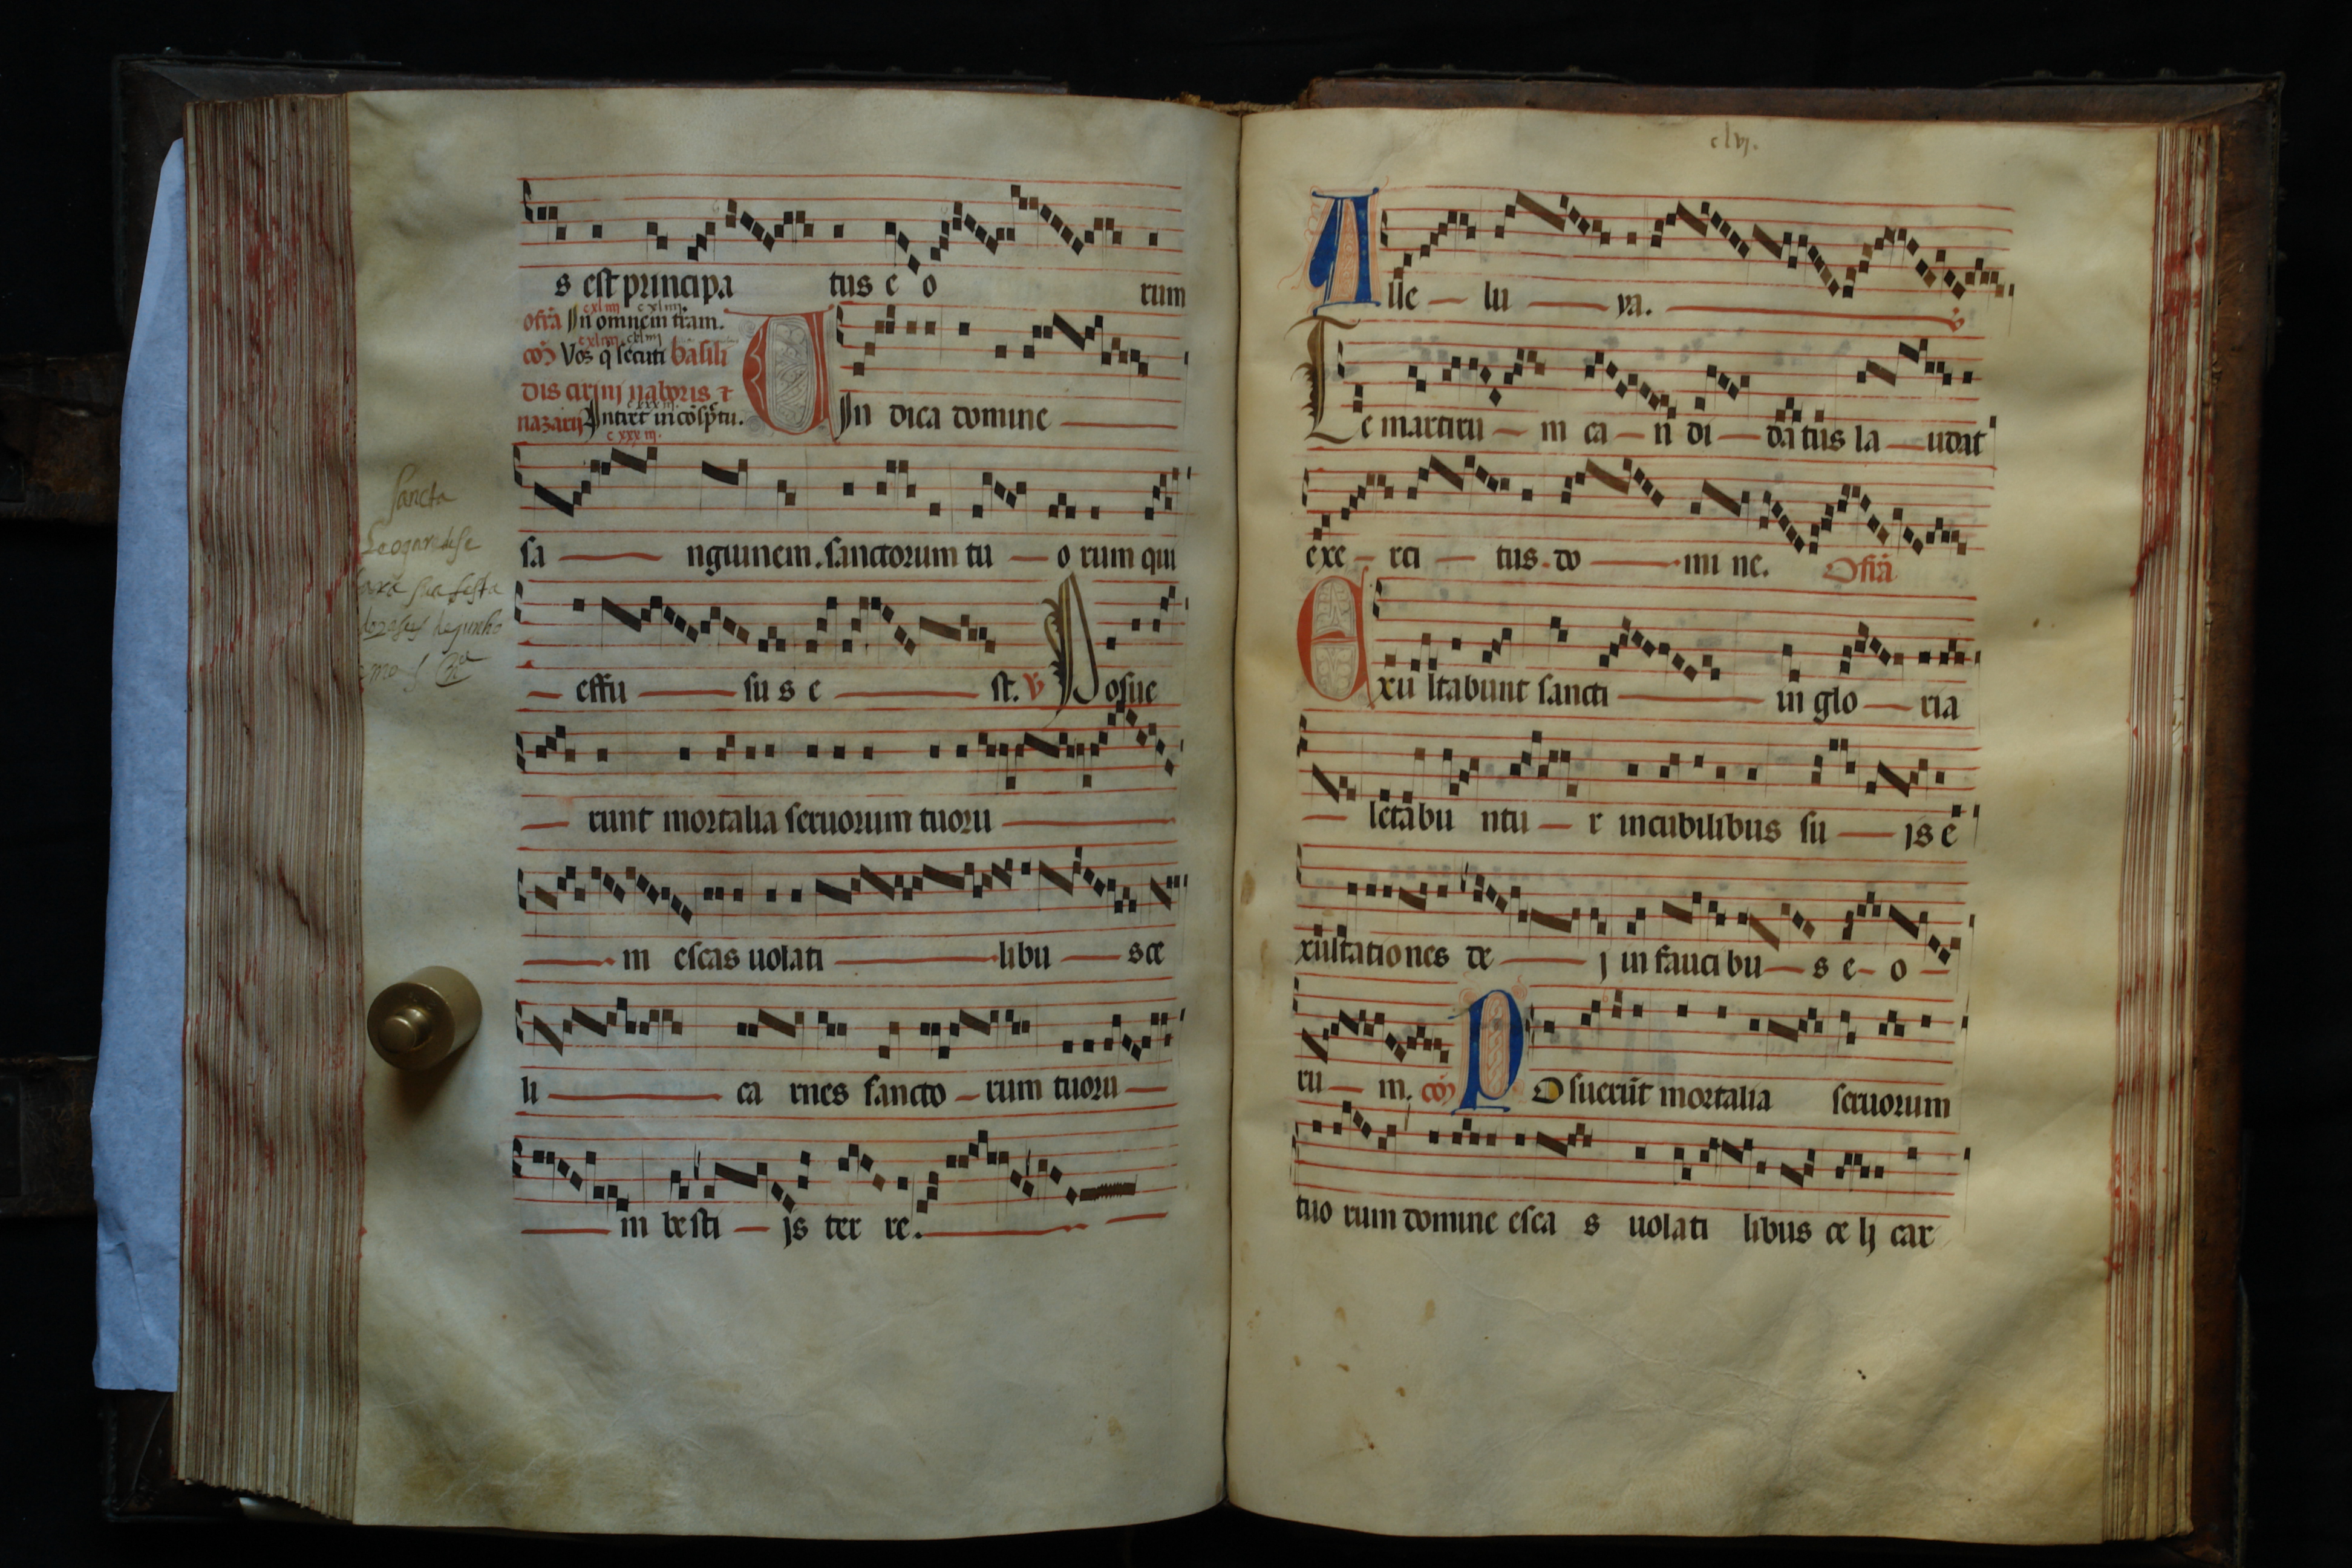 s est principa tus e o rum
ofrā In omnem tram.
cxliiij cxliiij.
cōȝ Vos q̄ secuti basili
dis cirini naboris ⁊
nazarij Intret in cōsp̄tu.
c xxx iij.
UIn dica domine
sa nguinem. sanctorum tu o rum qui
effu su s e st. ꝟ Posue
runt mortalia seruorum tuoru
m escas uolati libu s ce
li ca rnes sancto rum tuoru
m besti js ter re.
Sancta
clvj.
Alle lu ya. ꝟ
Te martiru m ca n di datus la udat
exe rci tus. do mi ne. Ofrā
Exu ltabunt sancti in glo ria
letabu ntu r incubilibus su js e
xultationes de j in fauci bu s e o
ru m. cōȝ Posuerūt mortalia seruorum
tuo rum domine esca s uolati libus ce lj car